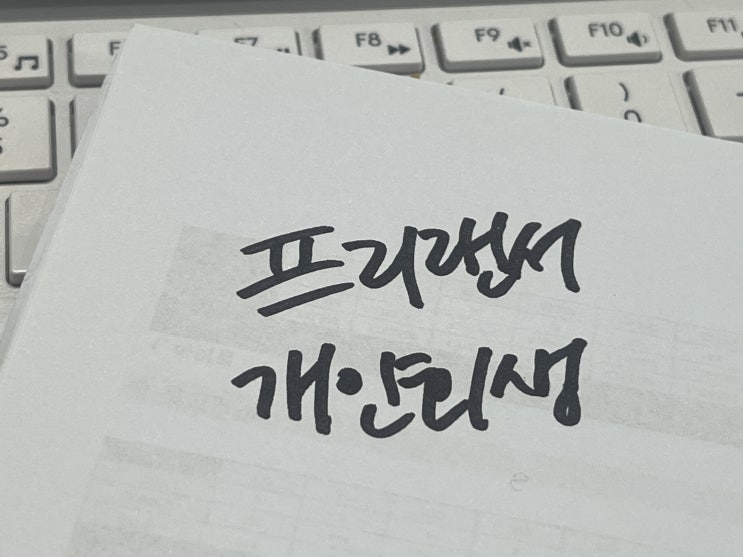 F7
F8
F9
F10
F11
)
프리랜서
개인회생